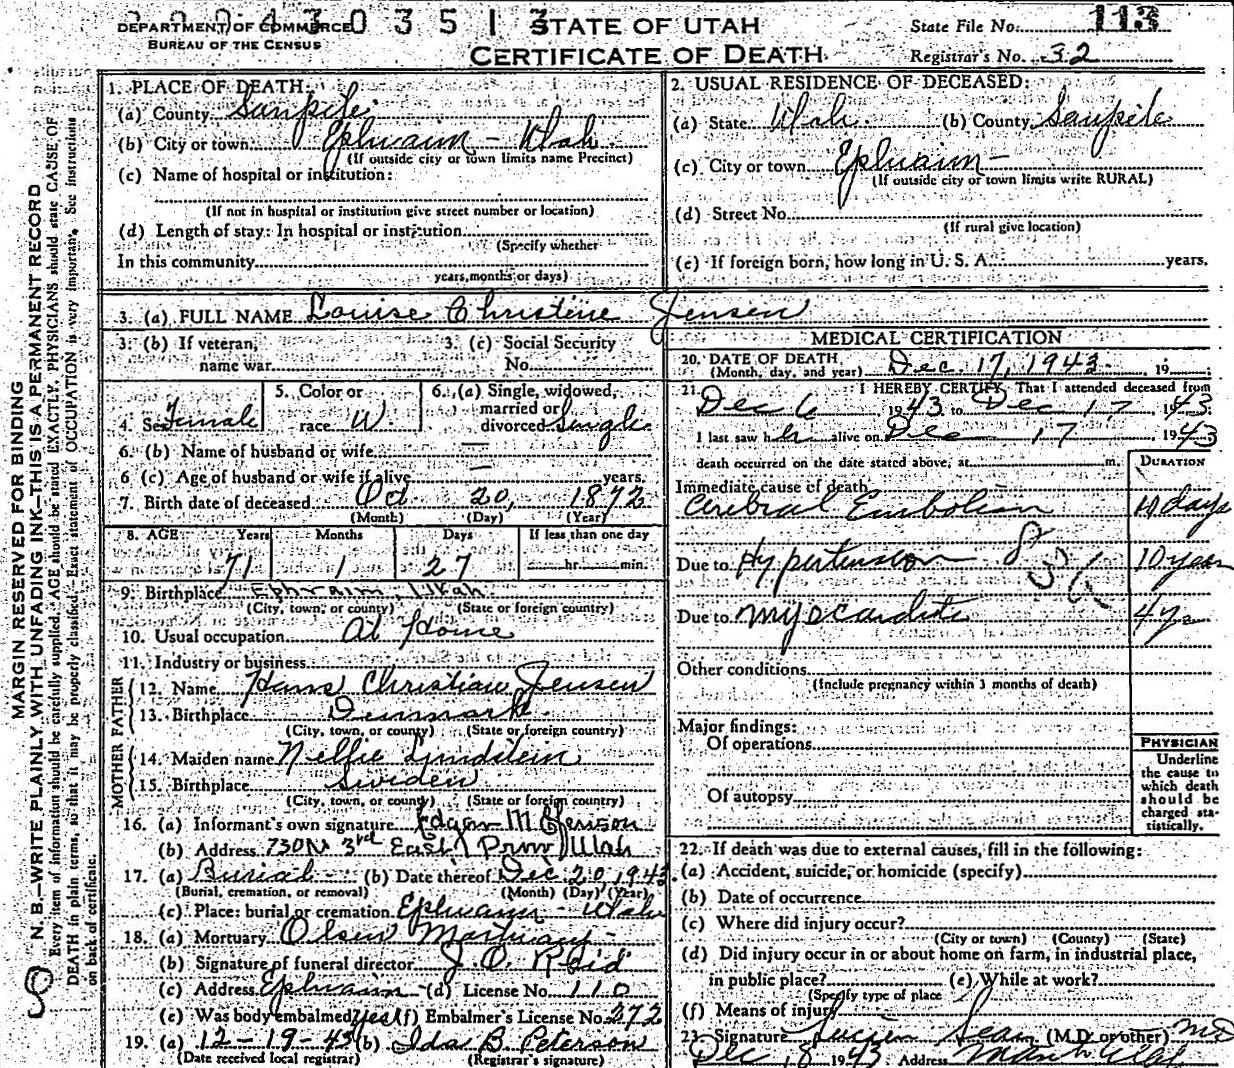 DEPARTMENT OF COMMERCE
BUREAU OF THE CENSUS
2 0 0 4 3 0 3 5 1 3
STATE OF UTAH
CERTIFICATE OF DEATH
State File No. 113
Registrar's No. 32
MARGIN RESERVED FOR BINDING
N. B.—WRITE PLAINLY, WITH UNFADING INK—THIS IS A PERMANENT RECORD
Every item of information should be carefully supplied. AGE should be stated EXACTLY. PHYSICIANS should state CAUSE OF
DEATH in plain terms, so that it may be properly classified. Exact statement of OCCUPATION is very important. See instructions
on back of certificate.
1. PLACE OF DEATH:
(a) County Sanpete
(b) City or town Ephraim - Utah
(If outside city or town limits name Precinct)
(c) Name of hospital or institution:
(If not in hospital or institution give street number or location)
(d) Length of stay: In hospital or institution
(Specify whether
In this community
years, months or days)
2. USUAL RESIDENCE OF DECEASED:
(a) State Utah (b) County Sanpete
(c) City or town Ephraim -
(If outside city or town limits write RURAL)
(d) Street No.
(If rural give location)
(e) If foreign born, how long in U. S. A. years.
3. (a) FULL NAME Louise Christine Jensen
3. (b) If veteran,
name war
3. (c) Social Security
No.
4. Sex Female
5. Color or
race W.
6. (a) Single, widowed,
married or
divorced Single
6. (b) Name of husband or wife —
6 (c) Age of husband or wife if alive — years.
7. Birth date of deceased Oct 20, 1872
(Month) (Day) (Year)
8. AGE Years Months Days If less than one day
71 1 27 hr. min.
9. Birthplace Ephraim, Utah
(City, town, or county) (State or foreign country)
10. Usual occupation At Home
11. Industry or business
FATHER
12. Name Hans Christian Jensen
13. Birthplace Denmark
(City, town, or county) (State or foreign country)
MOTHER
14. Maiden name Nellie Lundstein
15. Birthplace Sweden
(City, town, or county) (State or foreign country)
16. (a) Informant's own signature Edgar M Jenson
(b) Address 730 N 3rd East, Provo Utah
17. (a) Burial (b) Date thereof Dec 20 1943
(Burial, cremation, or removal) (Month) (Day) (Year)
(c) Place: burial or cremation Ephraim - Utah
18. (a) Mortuary Olsen Mortuary
(b) Signature of funeral director J. O. Reid
(c) Address Ephraim (d) License No. 110
(e) Was body embalmed yes (f) Embalmer's License No. 272
19. (a) 12-19-43 (b) Ida B. Peterson
(Date received local registrar) (Registrar's signature)
MEDICAL CERTIFICATION
20. DATE OF DEATH
(Month, day, and year) Dec. 17, 1943 , 19 ;
21. I HEREBY CERTIFY, That I attended deceased from
Dec 6 , 1943 to Dec 17 , 1943;
I last saw her alive on Dec 17 , 1943
death occurred on the date stated above, at m.
DURATION
Immediate cause of death
Cerebral Embolism 10 days
Due to Hypertension 10 years
Due to Myocardite 4 yrs
Other conditions
(Include pregnancy within 3 months of death)
Major findings:
Of operations
Of autopsy
PHYSICIAN
Underline
the cause to
which death
should be
charged sta-
tistically.
22. If death was due to external causes, fill in the following:
(a) Accident, suicide, or homicide (specify)
(b) Date of occurrence
(c) Where did injury occur?
(City or town) (County) (State)
(d) Did injury occur in or about home on farm, in industrial place,
in public place? (e) While at work?
(Specify type of place
(f) Means of injury
23. Signature Lucien Sears (M.D. or other) MD
Dec 18 1943 Address Manti Utah